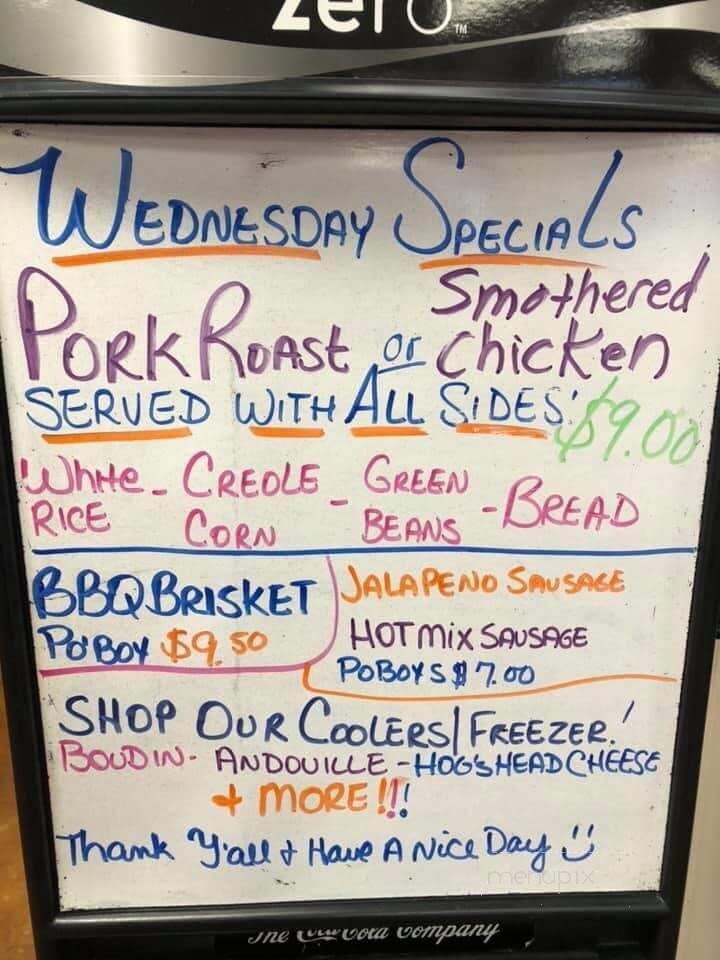 zero™
WEDNESDAY SPECIALS
PORK ROAST or Smothered Chicken
SERVED WITH ALL SIDES: $9.00
White RICE - CREOLE CORN - GREEN BEANS - BREAD
BBQ BRISKET
PO'BOY $9.50
JALAPENO SAUSAGE
HOT MIX SAUSAGE
POBOYS $7.00
SHOP OUR COOLERS/FREEZER!
BOUDIN - ANDOUILLE - HOGSHEAD CHEESE
+ MORE!!!
Thank Y'all + Have A Nice Day
menupix
The Coca-Cola Company